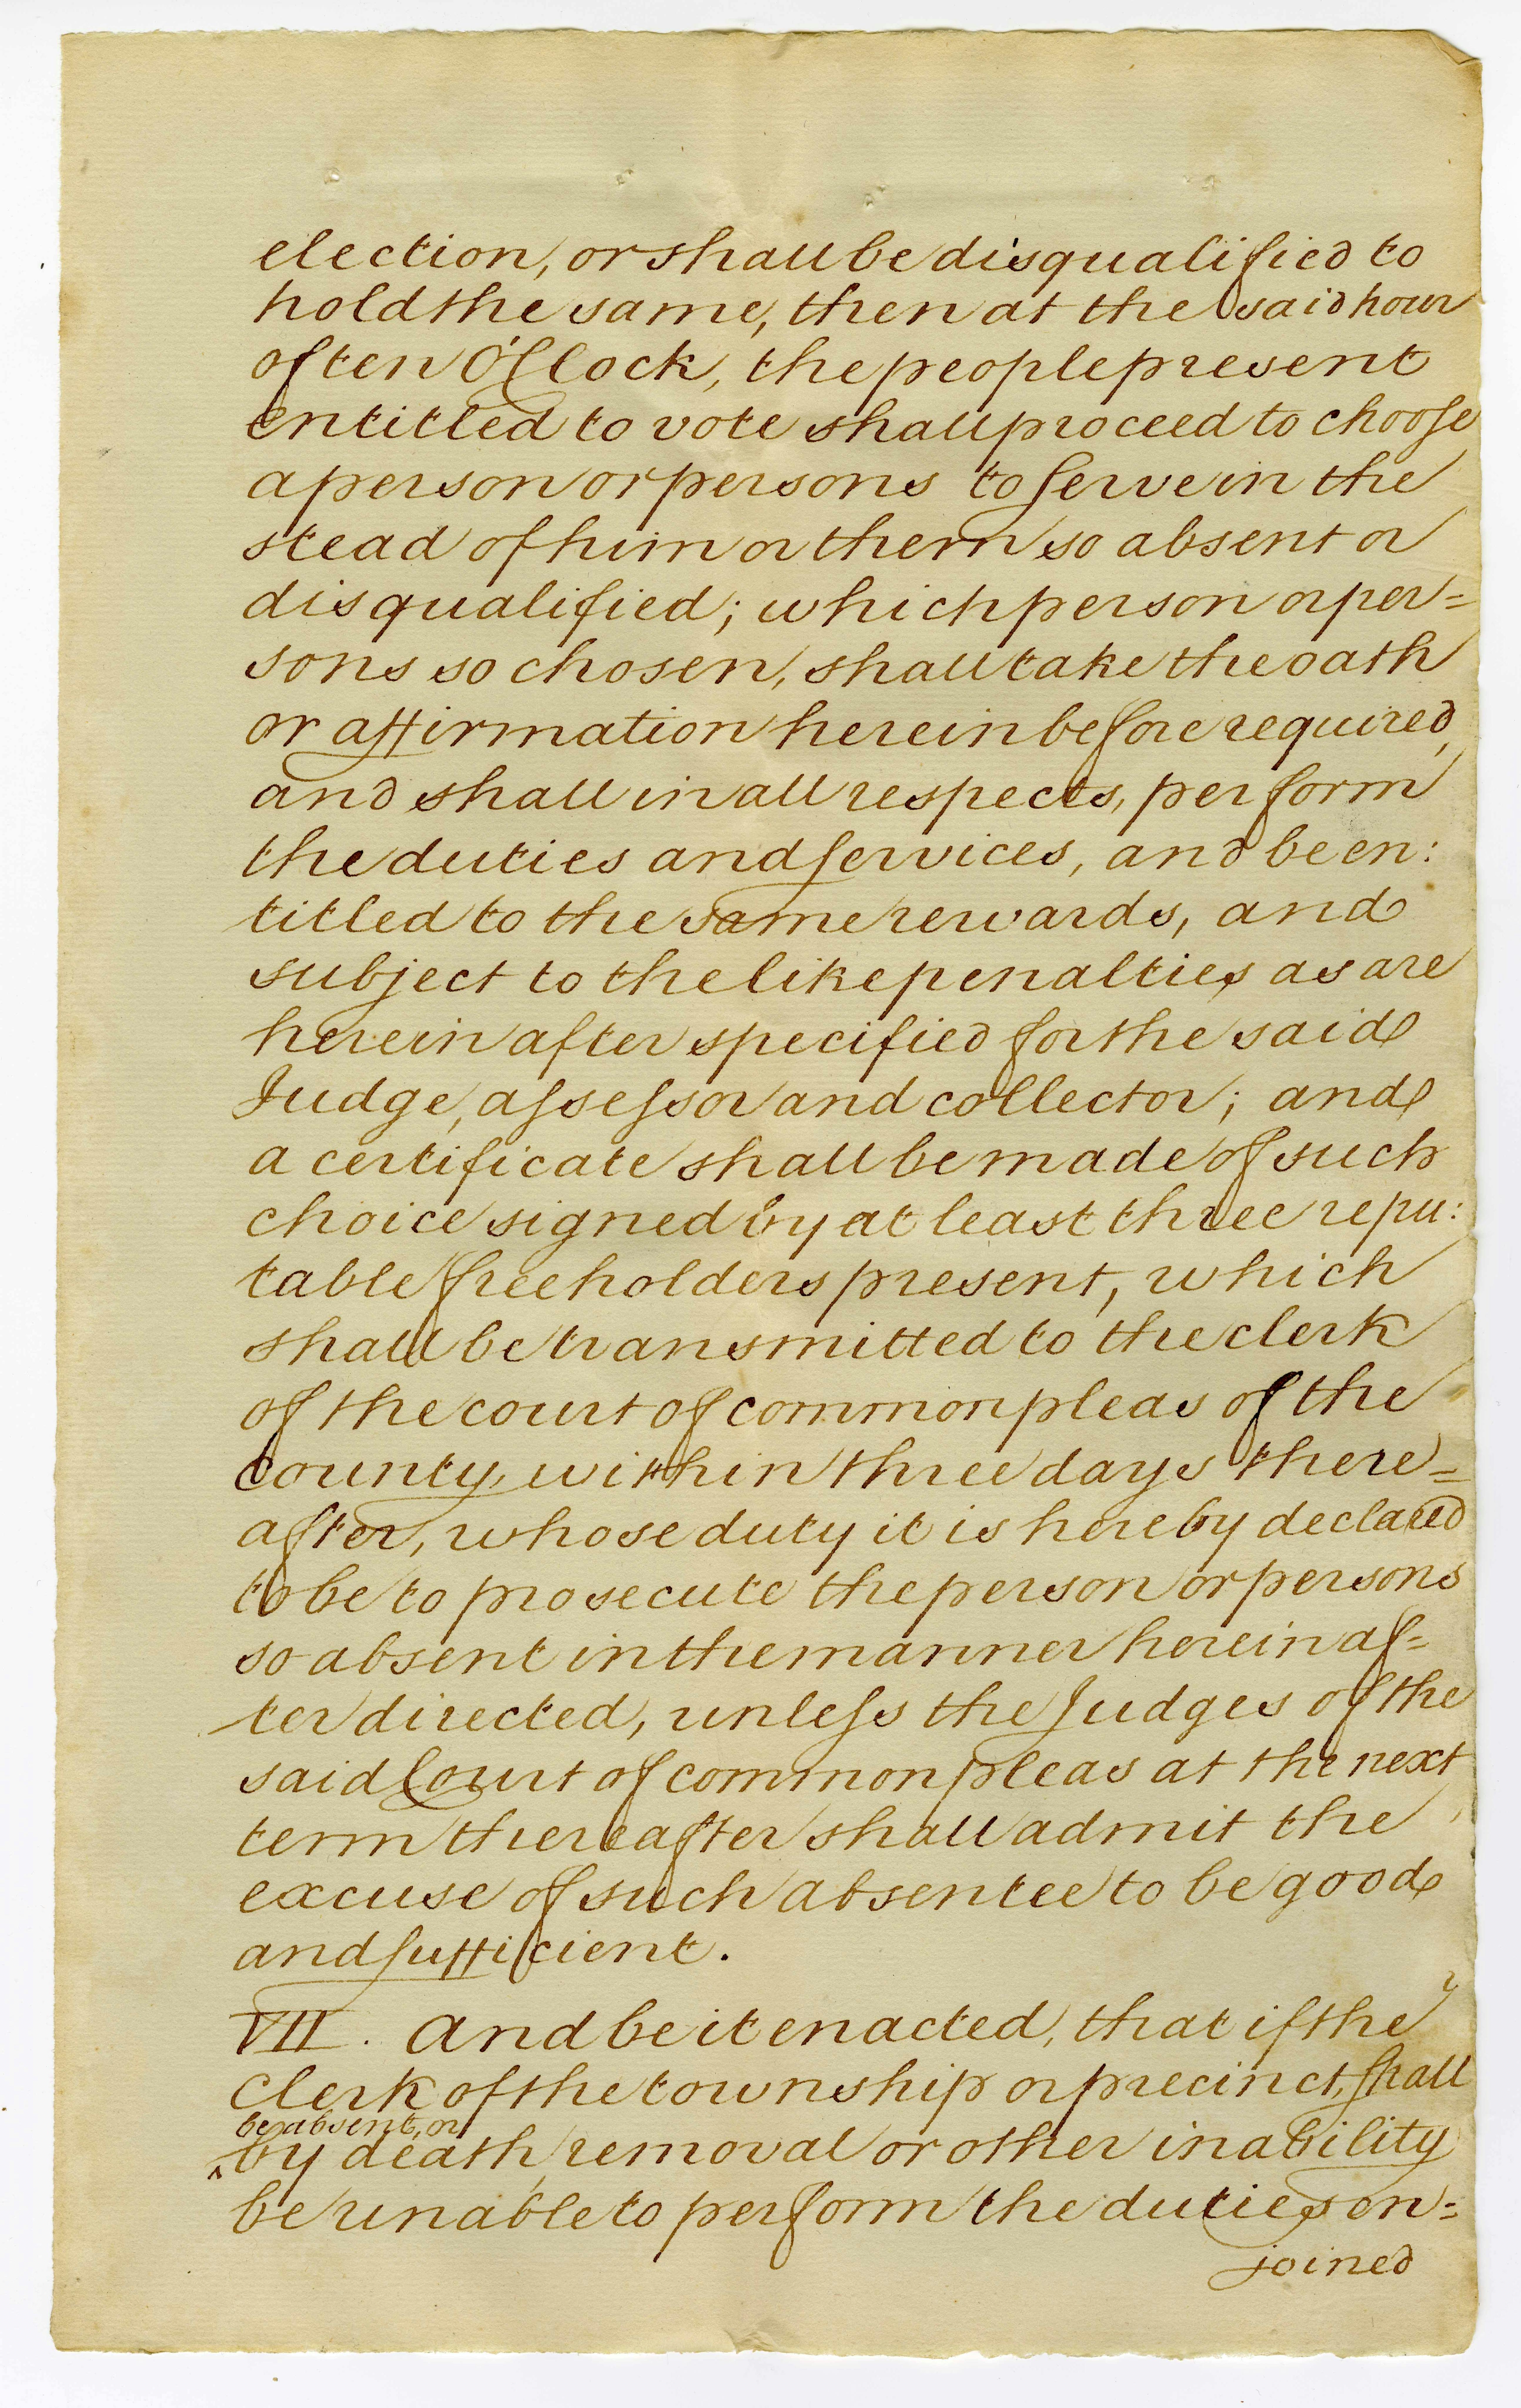 election, or shall be disqualified to
hold the same, then at the said hour
of ten O'Clock, the people present
entitled to vote shall proceed to choose
a person or persons to serve in the
stead of him or them so absent or
disqualified; which person or per=
sons so chosen, shall take the oath
or affirmation herein before required,
and shall in all respects, perform
the duties and services, and be en:
titled to the same rewards, and
subject to the like penalties as are
herein after specified for the said
Judge, assessor and collector; and
a certificate shall be made of such
choice signed by at least three repu:
table freeholders present, which
shall be transmitted to the clerk
of the court of common pleas of the
county, within three days there=
after, whose duty it is hereby declared
to be to prosecute the person or persons
so absent in the manner herein af=
ter directed, unless the Judges of the
said Court of common pleas at the next
term thereafter shall admit the
excuse of such absentee to be good
and sufficient.
VII. And be it enacted, that if the
Clerk of the township or precinct, shall
be absent, or
^by death, removal or other inability
be unable to perform the duties en=
joined